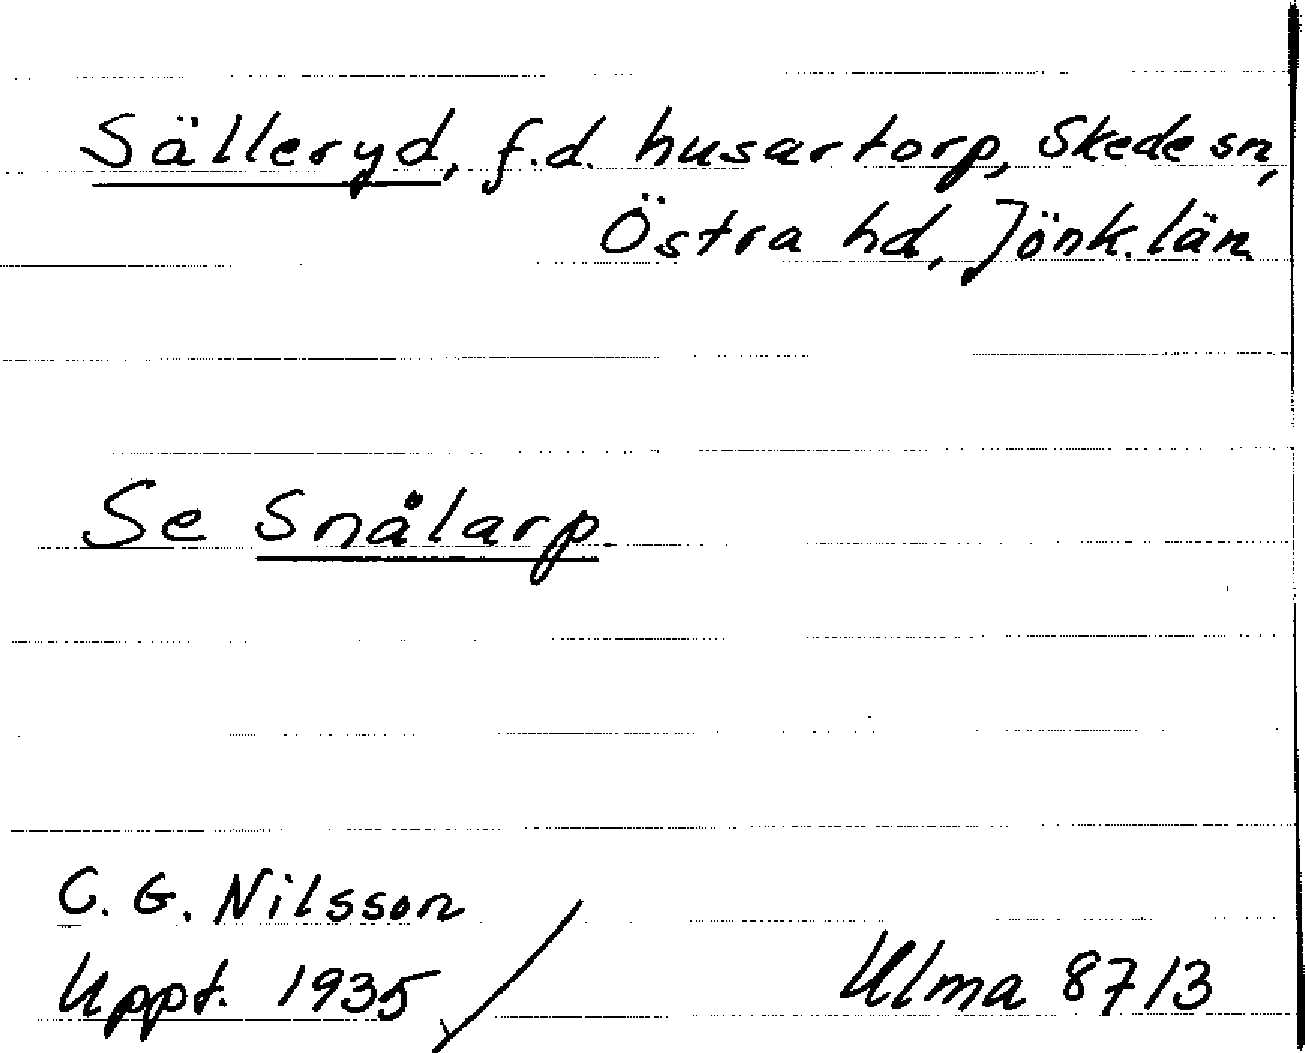 Sälleryd, f.d. husartorp, Skede sn,
Östra hd, Jönk. län
Se Snålarp.
C. G. Nilsson
Uppt. 1935
Ulma 8713